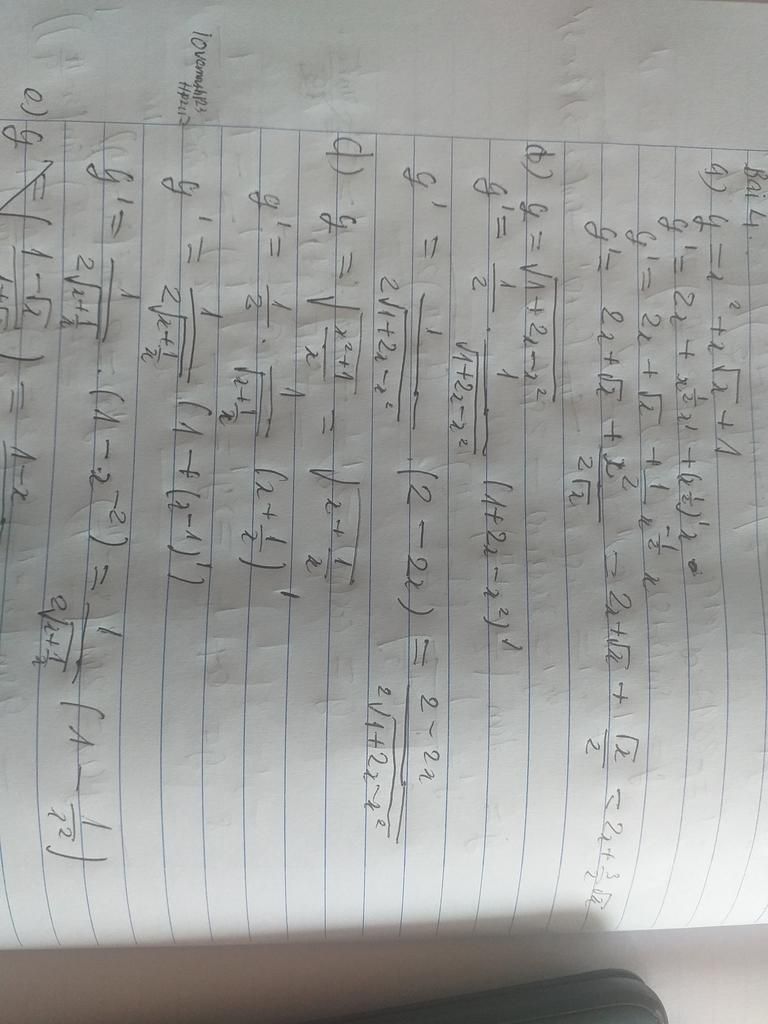 Bài 4.
a) y = x² + x√x + 1
y' = 2x + x^{1/2}x' + (x^{1/2})'x
y' = 2x + √x + 1/2 x^{-1/2} x
y' = 2x + √x + x²/(2√x) = 2x + √x + √x/2 = 2x + 3/2 √x
b) y = √(1+2x-x²)
y' = 1/2 · 1/√(1+2x-x²) (1+2x-x²)'
y' = 1/(2√(1+2x-x²)) · (2-2x) = (2-2x)/(2√(1+2x-x²))
d) y = √((x²+1)/x) = √(x+1/x)
y' = 1/2 · 1/√(x+1/x) (x+1/x)'
y' = 1/(2√(x+1/x)) (1+(x^{-1})')
y' = 1/(2√(x+1/x)) · (1-x^{-2}) = 1/(2√(x+1/x)) (1 - 1/x²)